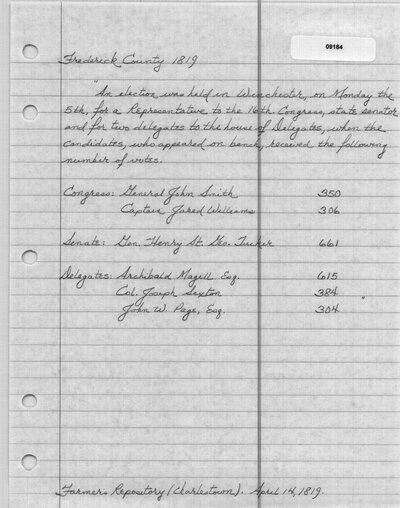 09184
Frederick County 1819
"An election was held in Winchester, on Monday the
5th, for a Representative to the 16th Congress, state senator
and for two delegates to the house of Delegates, when the
candidates, who appeared on bench, received the following
number of votes.
Congress: General John Smith 350
Captain Jared Williams 306
Senate: Gen. Henry St. Geo. Tucker 661
Delegates: Archibald Magill Esq. 615
Col. Joseph Sexton 384 "
John W. Page, Esq. 304
Farmer's Repository (Charlestown). April 14, 1819.